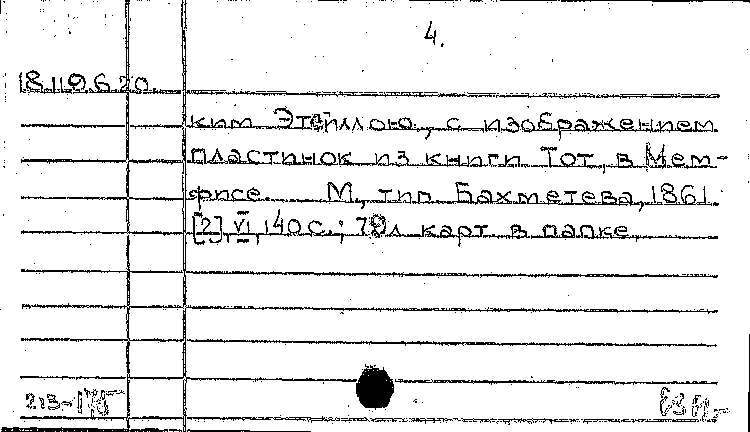 4.
18.119.6.20.
ким Этейллою, с изображением
пластинок из книги Тот, в Мем-
фисе. М., тип. Бахметева, 1861.
[2], VI, 140 с.; 78л карт. в папке.
213-175